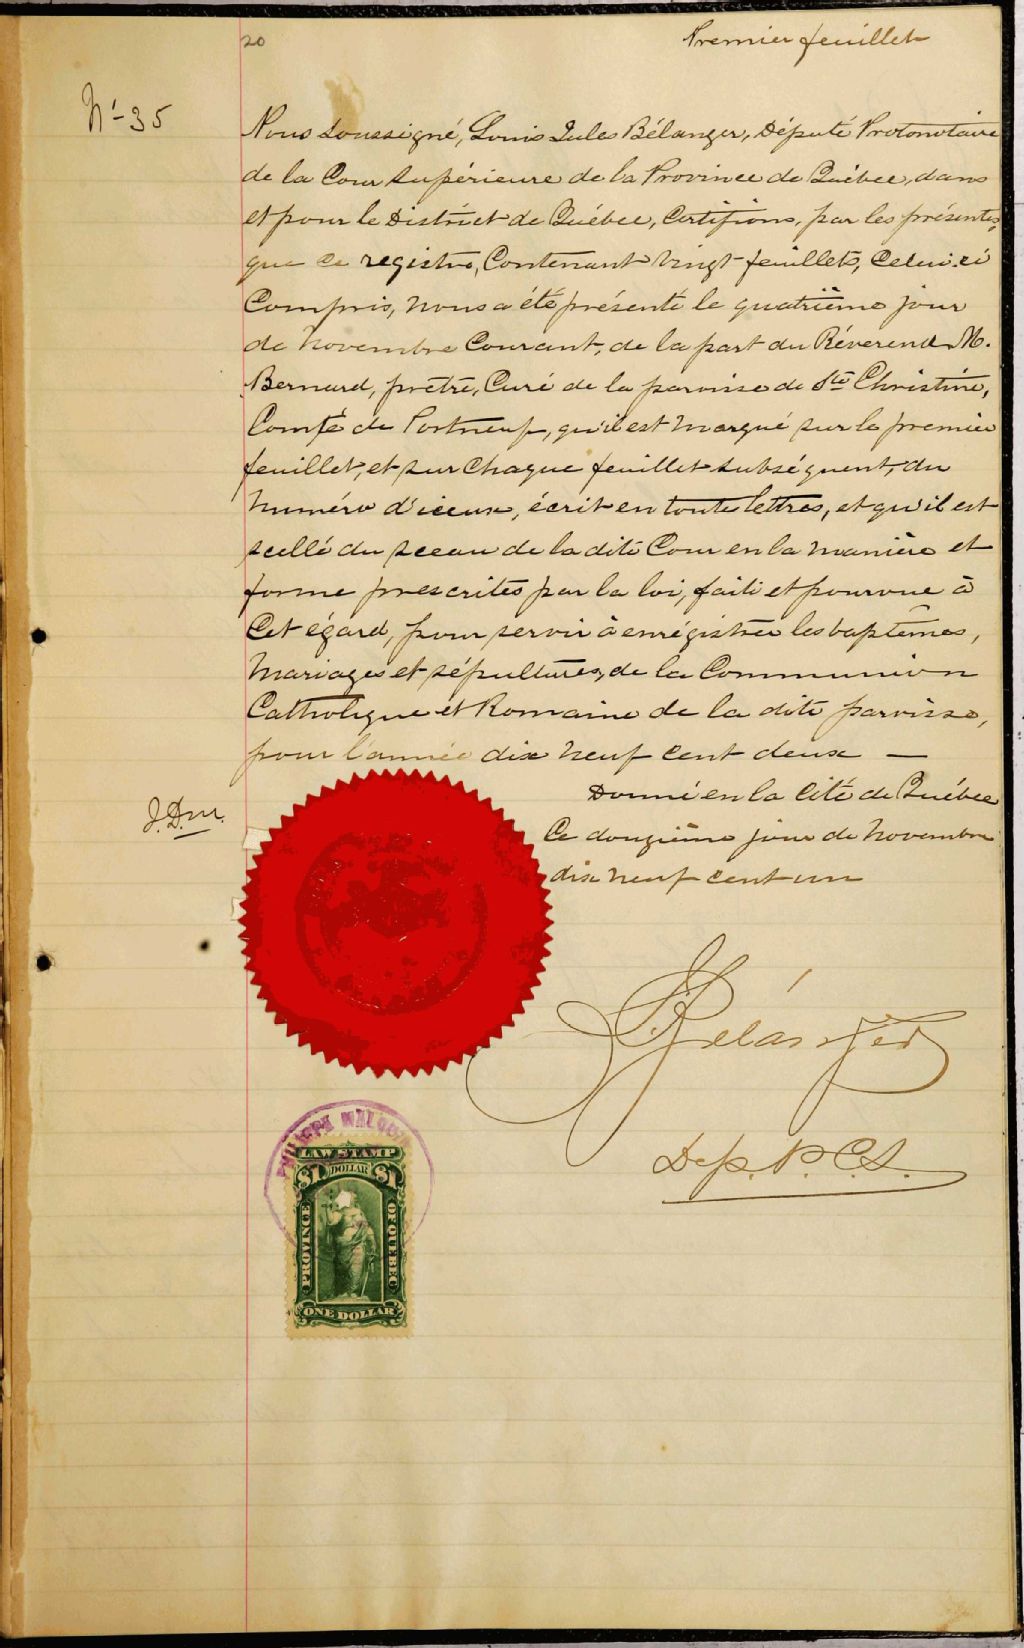 20
Premier feuillet
No 35
Nous soussigné, Louis Jules Bélanger, Député Protonotaire
de la Cour Supérieure de la Province de Québec, dans
et pour le District de Québec, Certifions, par les présentes,
que ce registre, Contenant vingt feuillets, Celui-ci
Compris, nous a été présenté le quatrième jour
de Novembre Courant, de la part du Réverend M.
Bernard, prêtre, Curé de la paroisse de Ste Christine,
Comté de Portneuf, qu'il est marqué sur le premier
feuillet, et sur chaque feuillet subséquent, du
Numéro d'iceux, écrit en toute lettres, et qu'il est
scellé du sceau de la dite Cour en la manière et
forme prescrites par la loi, faite et pourvue à
Cet égard, pour servir à enrégistrer les baptêmes,
Mariages et sépultures, de la Communion
Catholique et Romaine de la dite paroisse,
pour l'année dix neuf cent deux —
Donné en la Cité de Québec
J.Dm.
Ce douzième jour de Novembre
dix neuf cent un
Bélanger
Dep. P. C. S.
PHILIPPE
LAW STAMP
$1 DOLLAR $1
PROVINCE OF QUEBEC
ONE DOLLAR